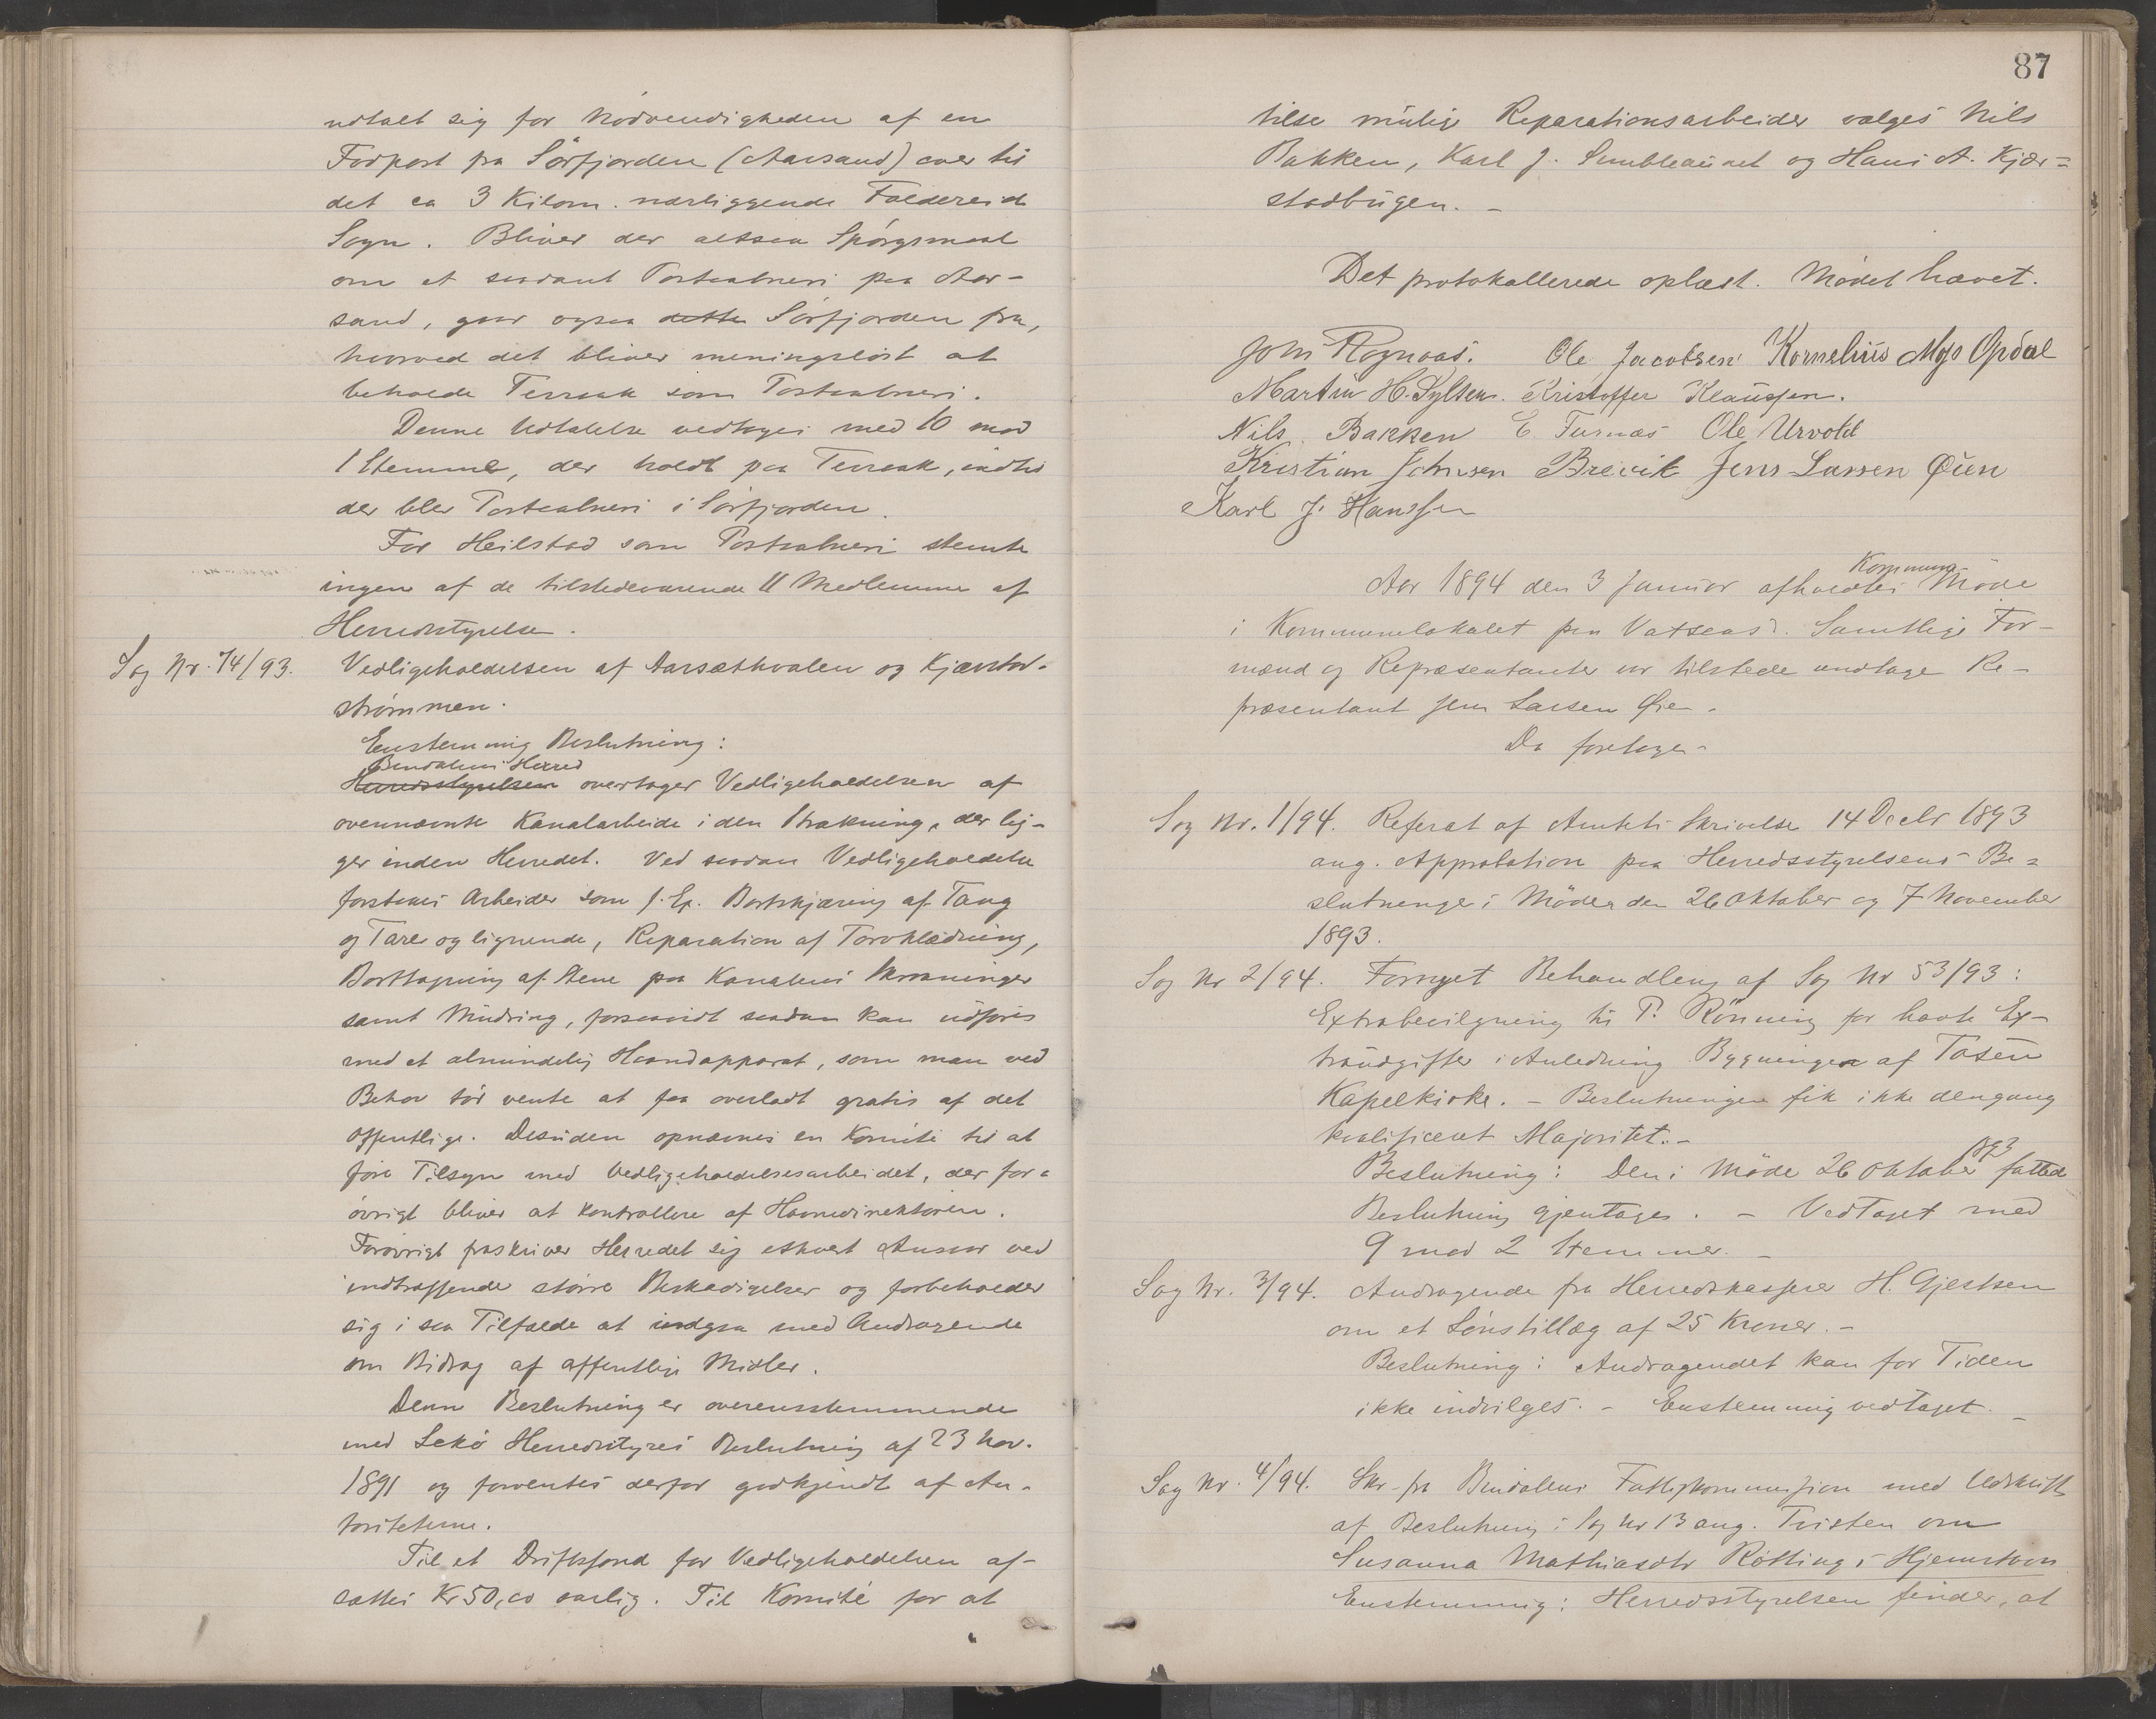 udtalt sig for Nødvendigheden af en
Fodpost fra Sörfjorden (Aarsand) over til
det ca 3 Kilom. nærliggende Foldereid
Sogn. Bliver der altsaa Spörgsmaal
om et saadant Postaabneri paa Aar-
sand, gaar ogsaa dette Sörfjorden fra,
hvorved det bliver meningsløst at
beholde Terraak som Postaabneri.
Denne Udtalelse vedtoges med 10 mod
1 Stemme, der holdt paa Terraak, indtil
der blev Postaabneri i Sörfjorden.
For Heilstad som Postaabneri stemte
ingen af de tilstedeværende 11 Medlemme af
Herredsstyrelsen.
Sag Nr. 74/93. Vedligeholdelsen af Aarsethvalen og Kjærstad-
strömmen.
Enstemmig Beslutning:
Bindalens Herred
Herredsstyrelsen overtager Vedligeholdelsen af
ovennævnte Kanalarbeide i den Strækning, der lig-
ger inden Herredet. Ved saadan Vedligeholdelse
forstaaes Arbeider som f. Ex. Bortskjæring af Tang
og Tare og lignende, Reparation af Torvklædning,
Borttagning af Stene paa Kanalens Skraaninger
samt Mudring, forsaavidt saadan kan udføres
med et almindelig Haandapparat, som man ved
Behov tör vente at faa overladt gratis af det
offentlige. Desuden opnævnes en Komité til at
føre Tilsyn med Vedligeholdelsesarbeidet, der for-
øvrigt bliver at kontrollere af Havnedirektøren.
Forøvrigt fraskriver Herredet sig ethvert Ansvar ved
indtræffende større Beskadigelser og forbeholder
sig i saa Tilfælde at indgaa med Andragende
om Bidrag af offentlige Midler.
Denne Beslutning er overensstemmende
med Lekö Herredsstyres Beslutning af 23 Nov.
1891 og forventes derfor godkjendt af Au-
toriteterne.
Til et Driftsfond for Vedligeholdelsen af-
sættes Kr 50,00 aarlig. Til Komité for at
87
tilse mulige Reparationsarbeider valges Nils
Bakken, Karl J. og Hans A. Kjær-
stadbugen. -
Det protokollerede oplæst. Mødet hævet.
John Rognaas. Ole Jacobsen Kornelius Mys Opdal
Martin H. Sylten. Kristoffer Klaussen.
Nils Bakken E Turnæs Ole Urvold
Kristian Johnsen Brevik Jens Larsen Øien
Karl J. Hanssen
Kommune
Aar 1894 den 3 Januar afholdtes Møde
i Kommunelokalet paa Vatsaas. Samtlige For-
mænd og Repræsentanter var tilstede undtage Re-
præsentant Jens Larsen Øien.
Da foretoges
Sag Nr. 1/94. Referat af Amtets Skrivelse 14 Decbr 1893
ang. Approbation paa Herredsstyrelsens Be-
slutninger i Møder den 26 Oktober og 7 November
1893.
Sag Nr 2/94. Fornyet Behandling af Sag Nr 53/93:
Extrabevilgning til P. Rönning for havte Ex-
traudgifter i Anledning Bygningen af Tosen
Kapelkirke. - Beslutningen fik ikke dengang
kvalificeret Majoritet. -
Beslutning: Den i Møde 26 Oktober 93 fattede
Beslutning gjentages. - Vedtaget med
9 mod 2 Stemmer. -
Sag Nr. 3/94. Andragende fra Herredskasserer H. Gjestsen
om et Lönstillæg af 25 Kroner. -
Beslutning: Andragendet kan for Tiden
ikke indvilges. - Enstemmig vedtaget. -
Sag Nr. 4/94. Skr. fra Bindalens Fattigkommission med Udskrift
af Beslutning i Sag Nr 13 ang. Tvisten om
Susanna Mathiasdtr Røttings Hjemstavn
Enstemmig: Herredsstyrelsen finder, at